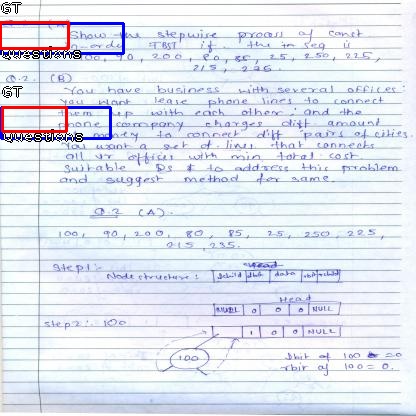 GT
Show the stepwise process of const
TBST if the in seq is
100, 90, 200, 80, 85, 25, 250, 225,
Questions
215, 235.
Q.2. (B)
GT
You have business with several offices:
You want lease phone lines to connect
them up with each other, and the
phone company charges diff amount
money to connect diff pairs of cities.
Questions
You want a set of lines that connects
all yr offices with min total cost.
Suitable Ds $ to address this problem
and suggest method for same.
Q.2 (A).
100, 90, 200, 80, 85, 25, 250, 225,
215, 235.
Step1:-
Head
Node structure: lchild lbit data rbit rchild
Head
NULL 0 0 0 NULL
step2:- 100
1 0 0 NULL
100
lbit of 100 = 0
rbit of 100 = 0.